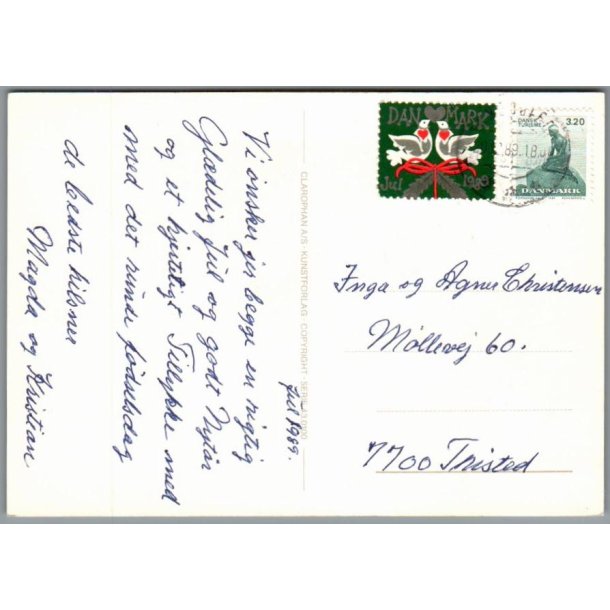 Jul 1989.
Vi ønsker jer begge en rigtig
Glædelig Jul og godt Nytår
og et hjerteligt Tillykke med
med det runde fødselsdag
de bedste hilsner
Magda og Kristian
CLAROPHAN A/S · KUNSTFORLAG · COPYRIGHT
DANMARK
Jul 1989
DANSK
TURISME
3.20
DANMARK
89.18.0
Inga og Agner Christensen
Møllevej 60.
7700 Thisted